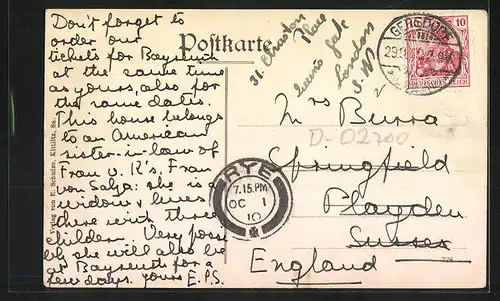 Don't forget to
order our
tickets for Bayreuth
at the same time
as yours, also for
the same dates.
This house belongs
to an American
sister-in-law of
Frau v. K's, Frau
von Salza: she is a
widow & lives
there with three
children. Very possi
bly she will also be
at Bayreuth for a
few days. yours E.P.S.
Verlag von E. Schulze, Kittlitz, Sa.
Postkarte
31.
Place
gate
London
S.W
10
DEUTSCHES REICH
Mrs Burra
D-02700
Springfield
Playden
Sussex
England
RYE
7.15.PM
OC 1
10